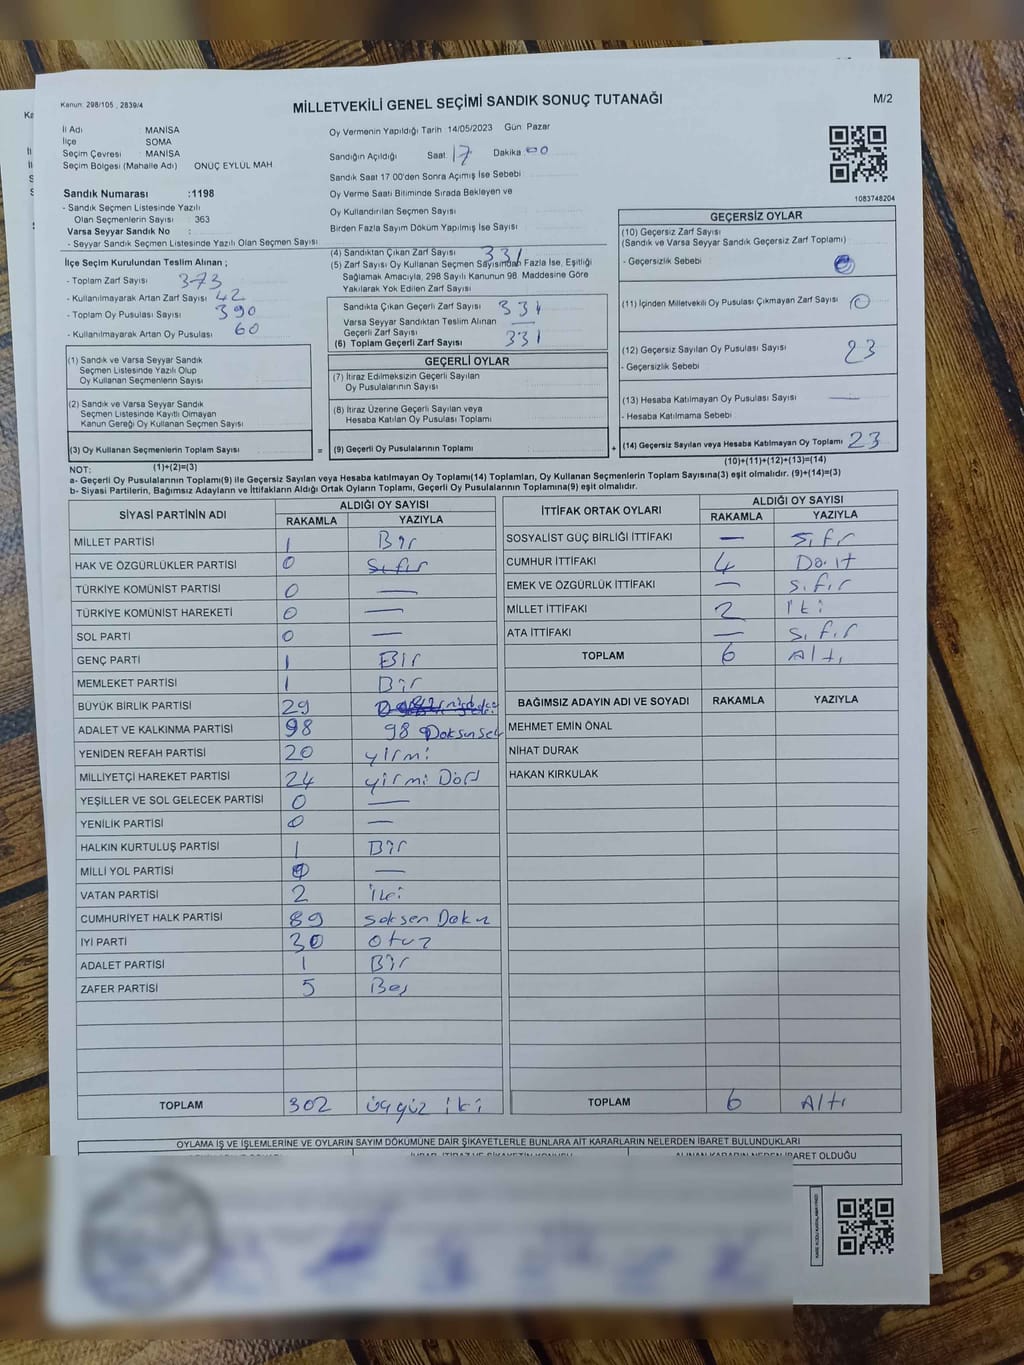 Kanun: 298/105 , 2839/4
MİLLETVEKİLİ GENEL SEÇİMİ SANDIK SONUÇ TUTANAĞI
M/2
İl Adı : MANİSA
İlçe : SOMA
Seçim Çevresi : MANİSA
Seçim Bölgesi (Mahalle Adı) : ONÜÇ EYLÜL MAH
Sandık Numarası :1198
- Sandık Seçmen Listesinde Yazılı
Olan Seçmenlerin Sayısı : 363
Varsa Seyyar Sandık No :
- Seyyar Sandık Seçmen Listesinde Yazılı Olan Seçmen Sayısı
Oy Vermenin Yapıldığı Tarih 14/05/2023 Gün Pazar
Sandığın Açıldığı Saat 17 Dakika 00
Sandık Saat 17 00'den Sonra Açımış İse Sebebi
Oy Verme Saati Bitiminde Sırada Bekleyen ve
Oy Kullandırılan Seçmen Sayısı
Birden Fazla Sayım Döküm Yapılmış İse Sayısı
1083748204
İlçe Seçim Kurulundan Teslim Alınan ;
- Toplam Zarf Sayısı 373
- Kullanılmayarak Artan Zarf Sayısı 42
- Toplam Oy Pusulası Sayısı 390
- Kullanılmayarak Artan Oy Pusulası 60
(1) Sandık ve Varsa Seyyar Sandık
Seçmen Listesinde Yazılı Olup
Oy Kullanan Seçmenlerin Sayısı
(2) Sandık ve Varsa Seyyar Sandık
Seçmen Listesinde Kayıtlı Olmayan
Kanun Gereği Oy Kullanan Seçmen Sayısı
(3) Oy Kullanan Seçmenlerin Toplam Sayısı =
(1)+(2)=(3)
(4) Sandıktan Çıkan Zarf Sayısı 331
(5) Zarf Sayısı Oy Kullanan Seçmen Sayısından Fazla İse, Eşitliği
Sağlamak Amacıyla, 298 Sayılı Kanunun 98. Maddesine Göre
Yakılarak Yok Edilen Zarf Sayısı
Sandıkta Çıkan Geçerli Zarf Sayısı 331
Varsa Seyyar Sandıktan Teslim Alınan
Geçerli Zarf Sayısı —
(6) Toplam Geçerli Zarf Sayısı 331
GEÇERLİ OYLAR
(7) İtiraz Edilmeksizin Geçerli Sayılan
Oy Pusulalarının Sayısı
(8) İtiraz Üzerine Geçerli Sayılan veya
Hesaba Katılan Oy Pusulası Toplamı
(9) Geçerli Oy Pusulalarının Toplamı +
GEÇERSİZ OYLAR
(10) Geçersiz Zarf Sayısı
(Sandık ve Varsa Seyyar Sandık Geçersiz Zarf Toplamı)
- Geçersizlik Sebebi
(11) İçinden Milletvekili Oy Pusulası Çıkmayan Zarf Sayısı 0
(12) Geçersiz Sayılan Oy Pusulası Sayısı 23
- Geçersizlik Sebebi
(13) Hesaba Katılmayan Oy Pusulası Sayısı —
- Hesaba Katılmama Sebebi
(14) Geçersiz Sayılan veya Hesaba Katılmayan Oy Toplamı 23
(10)+(11)+(12)+(13)=(14)
NOT:
a- Geçerli Oy Pusulalarının Toplamı(9) ile Geçersiz Sayılan veya Hesaba katılmayan Oy Toplamı(14) Toplamları, Oy Kullanan Seçmenlerin Toplam Sayısına(3) eşit olmalıdır. (9)+(14)=(3)
b- Siyasi Partilerin, Bağımsız Adayların ve İttifakların Aldığı Ortak Oyların Toplamı, Geçerli Oy Pusulalarının Toplamına(9) eşit olmalıdır.
SİYASİ PARTİNİN ADI ALDIĞI OY SAYISI
RAKAMLA YAZIYLA
MİLLET PARTİSİ 1 Bir
HAK VE ÖZGÜRLÜKLER PARTİSİ 0 Sıfır
TÜRKİYE KOMÜNİST PARTİSİ 0 —
TÜRKİYE KOMÜNİST HAREKETİ 0 —
SOL PARTİ 0 —
GENÇ PARTİ 1 Bir
MEMLEKET PARTİSİ 1 Bir
BÜYÜK BİRLİK PARTİSİ 29
ADALET VE KALKINMA PARTİSİ 98 98 Doksansek
YENİDEN REFAH PARTİSİ 20 yirmi
MİLLİYETÇİ HAREKET PARTİSİ 24 yirmi Dört
YEŞİLLER VE SOL GELECEK PARTİSİ 0 —
YENİLİK PARTİSİ 0 —
HALKIN KURTULUŞ PARTİSİ 1 Bir
MİLLİ YOL PARTİSİ 0 —
VATAN PARTİSİ 2 iki
CUMHURİYET HALK PARTİSİ 89 seksen Dokuz
İYİ PARTİ 30 otuz
ADALET PARTİSİ 1 Bir
ZAFER PARTİSİ 5 Beş
TOPLAM 302 üçyüz iki
İTTİFAK ORTAK OYLARI ALDIĞI OY SAYISI
RAKAMLA YAZIYLA
SOSYALİST GÜÇ BİRLİĞİ İTTİFAKI — sıfır
CUMHUR İTTİFAKI 4 Dört
EMEK VE ÖZGÜRLÜK İTTİFAKI — sıfır
MİLLET İTTİFAKI 2 iki
ATA İTTİFAKI — sıfır
TOPLAM 6 Altı
BAĞIMSIZ ADAYIN ADI VE SOYADI RAKAMLA YAZIYLA
MEHMET EMİN ÖNAL
NİHAT DURAK
HAKAN KIRKULAK
TOPLAM 6 Altı
OYLAMA İŞ VE İŞLEMLERİNE VE OYLARIN SAYIM DÖKÜMÜNE DAİR ŞİKAYETLERLE BUNLARA AİT KARARLARIN NELERDEN İBARET BULUNDUKLARI
ALINAN KARARIN NEDEN İBARET OLDUĞU